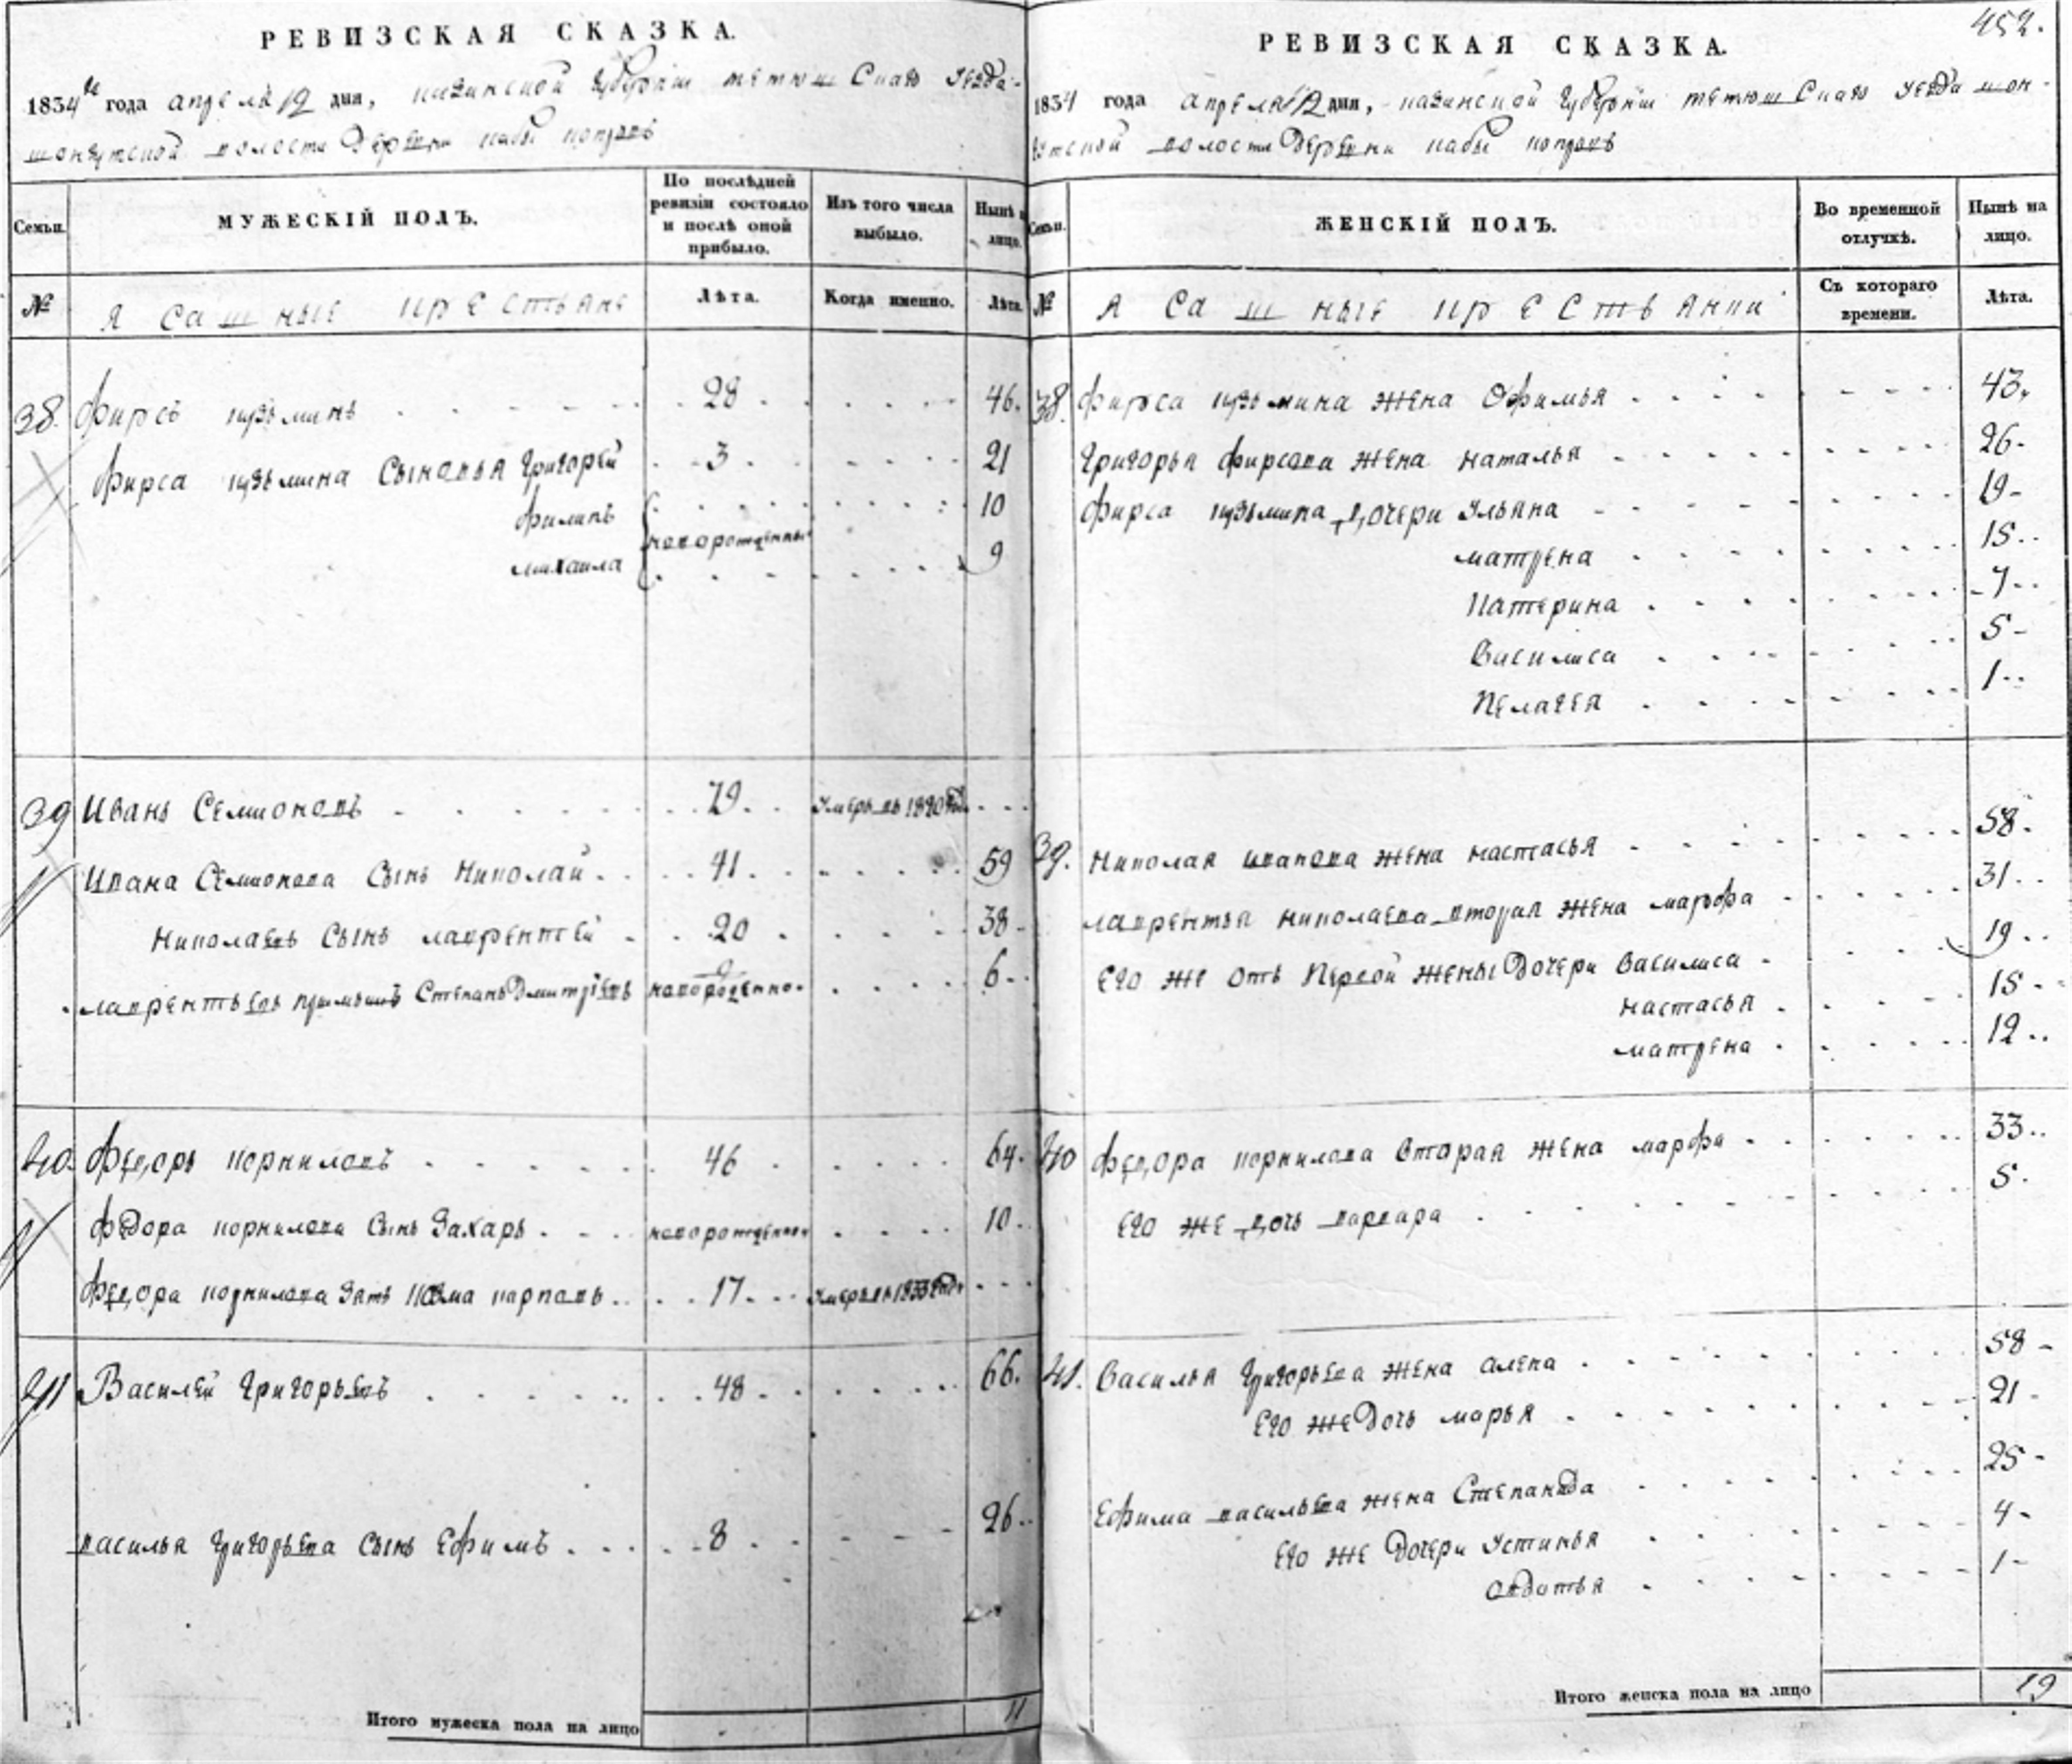 РЕВИЗСКАЯ СКАЗКА.
1834 года апреля 12 дня, казанской губернии тетюшскаго уезда
шонкутской волости деревни кабы копрявъ
Семьи. МУЖЕСКІЙ ПОЛЪ. По послѣдней ревизіи состояло и послѣ оной прибыло. Изъ того числа выбыло. Нынѣ на лицо.
№ ясашные крестьяне Лѣта. Когда именно. Лѣта.
38. фирсъ кузьминъ 28 46.
фирса кузьмина сыновья григорей 3 21
филипъ 10
новорожденные
михаила 9
39 иванъ семионовъ 79 умеръ въ 1820 году
ивана семионова сынъ николай 41 59
николаевъ сынъ лаврентей 20 38
лаврентьевъ приимышъ степанъ дмитріевъ новорожденно 6
40. федоръ корниловъ 46 64.
федора корнилова сынъ захаръ новорожденной 10.
федора корнилова зять карповъ 17 умеръ въ 1833 году
41 Василей григорьевъ 48 66.
василья григорьева сынъ ефимъ 8 26
Итого мужеска пола на лицо 11
452.
РЕВИЗСКАЯ СКАЗКА.
1834 года апреля 12 дня, казанской губернии тетюшскаго уезда шон-
кутской волости деревни кабы копрявъ
Семьи. ЖЕНСКІЙ ПОЛЪ. Во временной отлучкѣ. Нынѣ на лицо.
№ ясашные крестьянки Съ котораго времени. Лѣта.
38. фирса кузьмина жена офимья 43.
григорья фирсова жена наталья 26
фирса кузьмина дочери ульяна 19
матрена 15
катерина 7
василиса 5
пелагея 1
39. николая иванова жена настасья 58
лаврентья николаева вторая жена марфа 31
его же отъ первой жены дочери василиса 19
настасья 15
матрена 12
40 федора корнилова вторая жена марфа 33
его же дочь варвара 5
41. василья григорьева жена алена 58
его же дочь марья 21
ефима васильева жена степанида 25
его же дочери устинья 4
авдотья 1
Итого женска пола на лицо 19